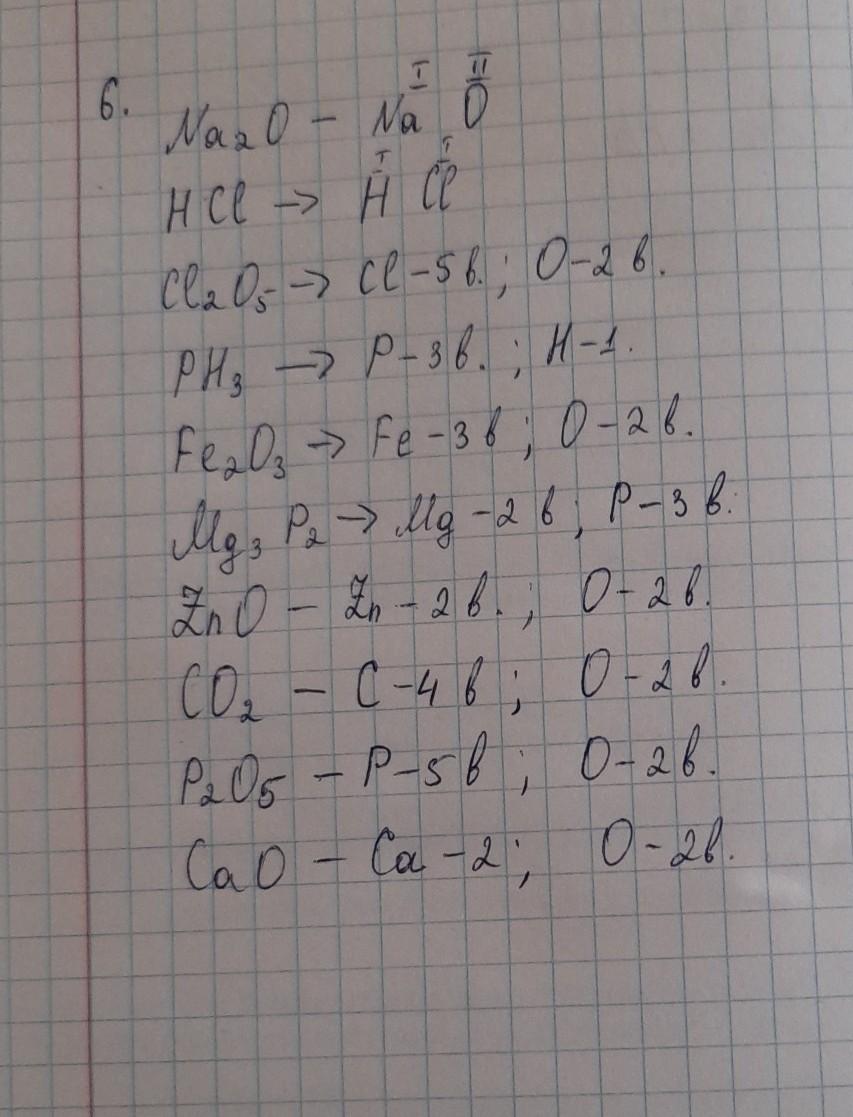 6. Na₂O – Naᴵ Oᴵᴵ
HCl → Hᴵ Clᴵ
Cl₂O₅ → Cl – 5 в.; O – 2 в.
PH₃ → P – 3 в.; H – 1.
Fe₂O₃ → Fe – 3 в; O – 2 в.
Mg₃P₂ → Mg – 2 в; P – 3 в.
ZnO – Zn – 2 в.; O – 2 в.
CO₂ – C – 4 в; O – 2 в.
P₂O₅ – P – 5 в; O – 2 в.
CaO – Ca – 2; O – 2 в.